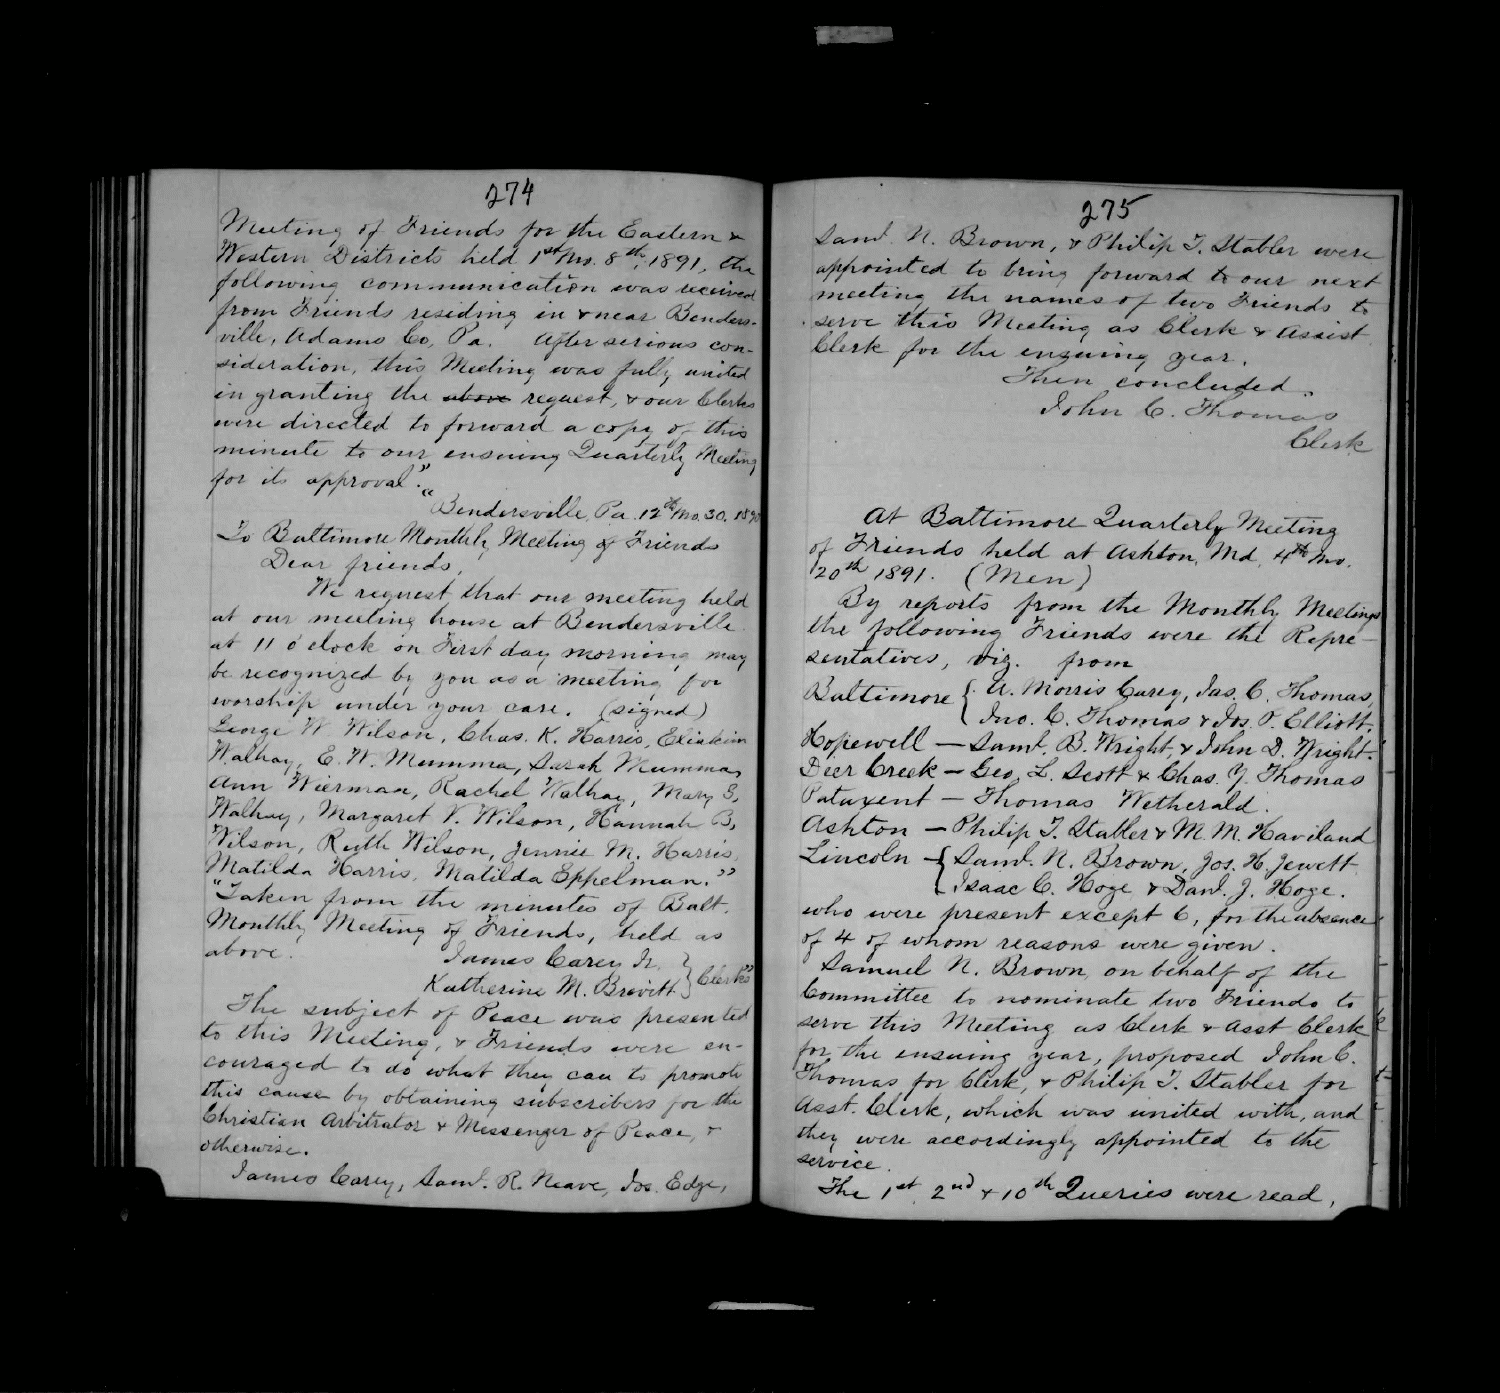 274
Meeting of Friends for the Eastern &
Western Districts held 1st Mo. 8th, 1891, the
following communication was received
from Friends residing in & near Benders-
ville, Adams Co, Pa. After serious con-
sideration, this Meeting was fully united
in granting the above request, & our Clerks
were directed to forward a copy of this
minute to our ensuing Quarterly Meeting
for its approval."
"Bendersville, Pa. 12th Mo. 30. 1890
To Baltimore Monthly Meeting of Friends
Dear friends,
We request that our meeting held
at our meeting house at Bendersville
at 11 o'clock on First day morning may
be recognized by you as a meeting for
worship under your care. (signed)
George W. Wilson, Chas. K. Harris, Eliakim
Walhay, E. W. Mumma, Sarah Mumma,
Ann Wierman, Rachel Walhay, Mary S.
Walhay, Margaret V. Wilson, Hannah B.
Wilson, Ruth Wilson, Jennie M. Harris,
Matilda Harris, Matilda Eppelman."
"Taken from the minutes of Balt.
Monthly Meeting of Friends, held as
above.
James Carey Jr. }
Katherine M. Brevitt } Clerks"
The subject of Peace was presented
to this Meeting, & Friends were en-
couraged to do what they can to promote
this cause by obtaining subscribers for the
Christian Arbitrator & Messenger of Peace, &
otherwise.
James Carey, Saml. R. Neave, Jos. Edge,
275
Saml. N. Brown, & Philip T. Stabler were
appointed to bring forward to our next
meeting the names of two Friends to
serve this Meeting as Clerk & Assist
Clerk for the ensuing year.
Then concluded.
John C. Thomas
Clerk
At Baltimore Quarterly Meeting
of Friends held at Ashton, Md, 4th Mo.
20th 1891. (Men)
By reports from the Monthly Meetings
the following Friends were the Repre-
sentatives, viz. from
Baltimore { A. Morris Carey, Jas. C. Thomas,
Jno. C. Thomas & Jos. P. Elliott.
Hopewell — Saml. B. Wright, & John D. Wright.
Deer Creek — Geo. L. Scott & Chas. Y. Thomas
Patuxent — Thomas Wetherald.
Ashton — Philip T. Stabler & M. M. Haviland
Lincoln — { Saml. N. Brown, Jos. H. Jewett
Isaac C. Hoge & Danl. J. Hoge.
who were present except 6, for the absence
of 4 of whom reasons were given.
Samuel N. Brown, on behalf of the
Committee to nominate two Friends to
serve this Meeting as Clerk & Asst Clerk
for the ensuing year, proposed John C.
Thomas for Clerk, & Philip T. Stabler for
Asst. Clerk, which was united with, and
they were accordingly appointed to the
service.
The 1st, 2nd & 10th Queries were read,